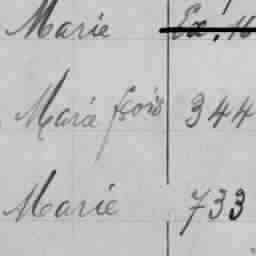 Marie Ex. 16
Marie 344
Marie 733